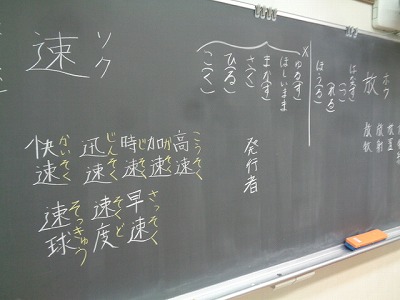 放 ホウ
はなす
ほうる
放牧
放射
放置
ゆるす
ほしいまま
まなす
さく
ひる
こく
発行者
速 ソク
高速 こうそく
加速 かそく
時速 じそく
迅速 じんそく
快速 かいそく
早速 さっそく
速度 そくど
速球 そっきゅう